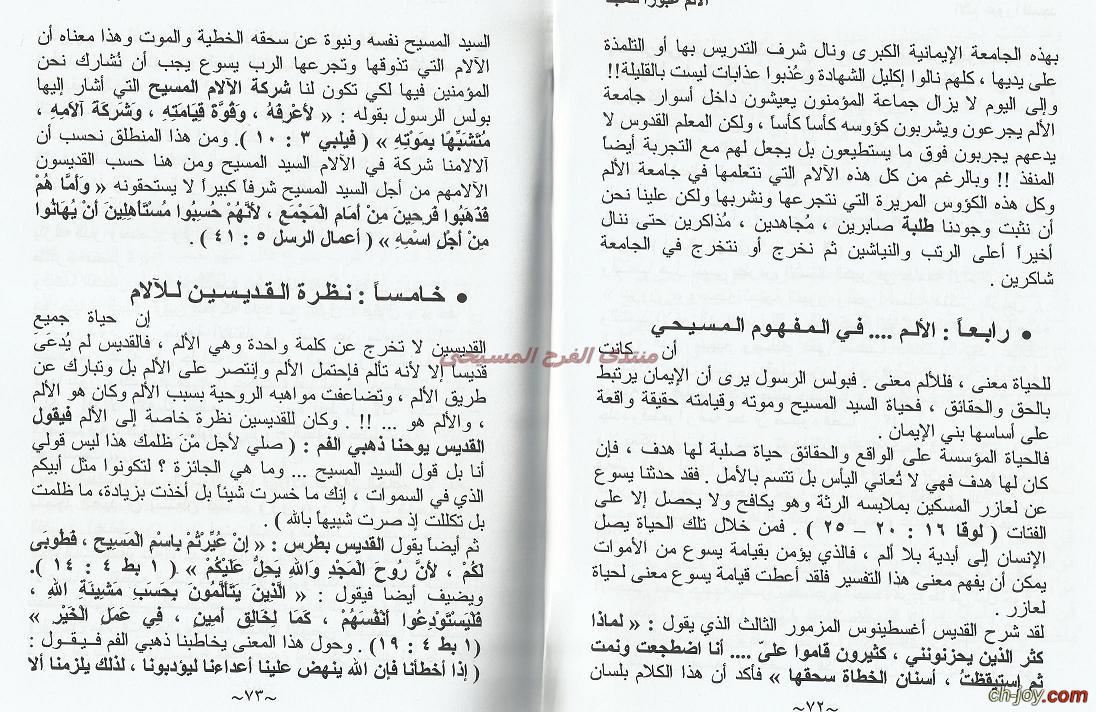 بهذه الجامعة الإيمانية الكبرى ونال شرف التدريس بها أو التلمذة
على يديها ، كلهم نالوا إكليل الشهادة وعُذبوا عذابات ليست بالقليلة!!
وإلى اليوم لا يزال جماعة المؤمنون يعيشون داخل أسوار جامعة
الألم يجرعون ويشربون كؤوسه كأساً كأساً ، ولكن المعلم القدوس لا
يدعهم يجربون فوق ما يستطيعون بل يجعل لهم مع التجربة أيضاً
المنفذ !! وبالرغم من كل هذه الآلام التي نتعلمها في جامعة الألم
وكل هذه الكؤوس المريرة التي نتجرعها ونشربها ولكن علينا نحن
أن نثبت وجودنا طلبة صابرين ، مُجاهدين ، مُذاكرين حتى ننال
أخيراً أعلى الرتب والنياشين ثم نخرج أو نتخرج في الجامعة
شاكرين .
• رابعاً : الألم .... في المفهوم المسيحي
أن كانت
للحياة معنى ، فللألم معنى . فبولس الرسول يرى أن الإيمان يرتبط
بالحق والحقائق ، فحياة السيد المسيح وموته وقيامته حقيقة واقعة
على أساسها بني الإيمان .
فالحياة المؤسسة على الواقع والحقائق حياة صلبة لها هدف ، فإن
كان لها هدف فهي لا تُعاني اليأس بل تتسم بالأمل . فقد حدثنا يسوع
عن لعازر المسكين بملابسه الرثة وهو يكافح ولا يحصل إلا على
الفتات ( لوقا ١٦ : ٢٠ – ٢٥ ) . فمن خلال تلك الحياة يصل
الإنسان إلى أبدية بلا ألم ، فالذي يؤمن بقيامة يسوع من الأموات
يمكن أن يفهم معنى هذا التفسير فلقد أعطت قيامة يسوع معنى لحياة
لعازر .
لقد شرح القديس أغسطينوس المزمور الثالث الذي يقول : « لماذا
كثر الذين يحزنونني ، كثيرون قاموا علىّ .... أنا اضطجعت ونمت
ثم إستيقظتُ ، أسنان الخطاة سحقها » فأكد أن هذا الكلام بلسان
~٧٢~
السيد المسيح نفسه ونبوة عن سحقه الخطية والموت وهذا معناه أن
الآلام التي تذوقها وتجرعها الرب يسوع يجب أن نُشارك نحن
المؤمنين فيها لكي تكون لنا شركة الآلام المسيح التي أشار إليها
بولس الرسول بقوله : « لأعْرِفَهُ ، وَقُوَّةَ قِيَامَتِهِ ، وَشَرِكَةَ آلامِهِ ،
مُتَشَبِّهًا بِمَوْتِهِ » ( فيلبي ٣ : ١٠ ). ومن هذا المنطلق نحسب أن
آلالامنا شركة في الآلام السيد المسيح ومن هنا حسب القديسون
الآلامهم من أجل السيد المسيح شرفاً كبيراً لا يستحقونه « وَأَمَّا هُمْ
فَذَهَبُوا فَرِحِينَ مِنْ أَمَامِ المَجْمَعِ ، لأَنَّهُمْ حُسِبُوا مُسْتَأْهِلِينَ أَنْ يُهَانُوا
مِنْ أَجْلِ اسْمِهِ » ( أعمال الرسل ٥ : ٤١ ) .
• خامساً : نظرة القديسين للآلام
إن حياة جميع
القديسين لا تخرج عن كلمة واحدة وهي الألم ، فالقديس لم يُدعَىَ
قديساً إلا لأنه تألم فإحتمل الألم وإنتصر على الألم بل وتبارك عن
طريق الألم ، وتضاعفت مواهبه الروحية بسبب الألم وكان هو الألم
، والألم هو ... !! . وكان للقديسين نظرة خاصة إلى الألم فيقول
القديس يوحنا ذهبي الفم : ( صلي لأجل مْنَ ظلمك هذا ليس قولي
أنا بل قول السيد المسيح ... وما هي الجائزة ؟ لتكونوا مثل أبيكم
الذي في السموات ، إنك ما خسرت شيئاً بل أخذت بزيادة، ما ظلمت
بل تكللت إذ صرت شبيهاً بالله ) .
ثم أيضاً يقول القديس بطرس : « إِنْ عُيِّرْتُمْ بِاسْمِ المَسِيحِ ، فَطُوبَى
لَكُمْ ، لأَنَّ رُوحَ المَجْدِ وَاللهِ يَحِلُّ عَلَيْكُمْ » ( ١ بط ٤ : ١٤ ).
ويضيف أيضا فيقول : « الَّذِينَ يَتَأَلَّمُونَ بِحَسَبِ مَشِيئَةِ اللهِ ،
فَلْيَسْتَوْدِعُوا أَنْفُسَهُمْ ، كَمَا لِخَالِقٍ أمِينٍ ، فِي عَمَلِ الْخَيْرِ »
(١ بط ٤ : ١٩) . وحول هذا المعنى يخاطبنا ذهبي الفم فيقول :
( إذا أخطأنا فإن الله ينهض علينا أعداءنا ليؤدبونا ، لذلك يلزمنا ألا
~٧٣~
منتدى الفرح المسيحي
ch-joy.com